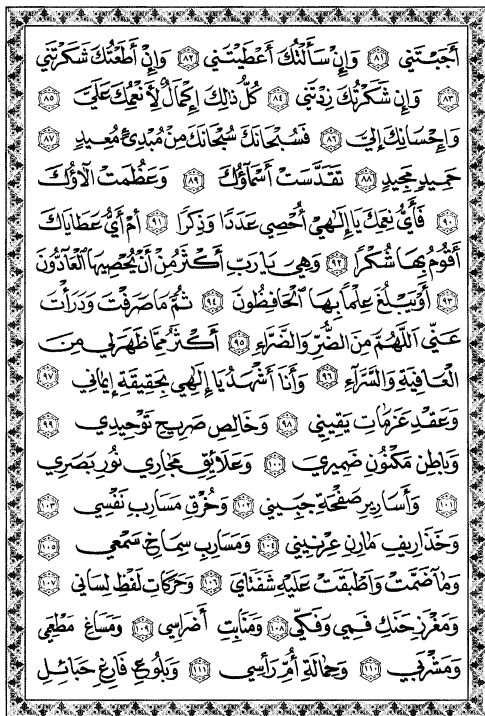 أَجَبْتَنِي ﴿٨١﴾ وَإِنْ سَأَلْتُكَ أَعْطَيْتَنِي ﴿٨٢﴾ وَإِنْ أَطَعْتُكَ شَكَرْتَنِي
﴿٨٣﴾ وَإِنْ شَكَرْتُكَ زِدْتَنِي ﴿٨٤﴾ كُلُّ ذٰلِكَ إِكْمَالٌ لِأَنْعُمِكَ عَلَيَّ ﴿٨٥﴾
وَإِحْسَانِكَ إِلَيَّ ﴿٨٦﴾ فَسُبْحَانَكَ سُبْحَانَكَ مِنْ مُبْدِئٍ مُعِيدٍ ﴿٨٧﴾
حَمِيدٍ مَجِيدٍ ﴿٨٨﴾ تَقَدَّسَتْ أَسْمَاؤُكَ ﴿٨٩﴾ وَعَظُمَتْ آلَاؤُكَ
﴿٩٠﴾ فَأَيُّ نِعَمِكَ يَا إِلٰهِي أُحْصِي عَدَدًا وَذِكْرًا ﴿٩١﴾ أَمْ أَيُّ عَطَايَاكَ
أَقُومُ بِهَا شُكْرًا ﴿٩٢﴾ وَهِيَ يَا رَبِّ أَكْثَرُ مِنْ أَنْ يُحْصِيَهَا الْعَادُّونَ
﴿٩٣﴾ أَوْ يَبْلُغَ عِلْمًا بِهَا الْحَافِظُونَ ﴿٩٤﴾ ثُمَّ مَا صَرَفْتَ وَدَرَأْتَ
عَنِّي اللّٰهُمَّ مِنَ الضُّرِّ وَالضَّرَّاءِ ﴿٩٥﴾ أَكْثَرُ مِمَّا ظَهَرَ لِي مِنَ
الْعَافِيَةِ وَالسَّرَّاءِ ﴿٩٦﴾ وَأَنَا أَشْهَدُ يَا إِلٰهِي بِحَقِيقَةِ إِيمَانِي ﴿٩٧﴾
وَعَقْدِ عَزَمَاتِ يَقِينِي ﴿٩٨﴾ وَخَالِصِ صَرِيحِ تَوْحِيدِي ﴿٩٩﴾
وَبَاطِنِ مَكْنُونِ ضَمِيرِي ﴿١٠٠﴾ وَعَلَائِقِ مَجَارِي نُورِ بَصَرِي
﴿١٠١﴾ وَأَسَارِيرِ صَفْحَةِ جَبِينِي ﴿١٠٢﴾ وَخُرْقِ مَسَارِبِ نَفْسِي ﴿١٠٣﴾
وَخَذَارِيفِ مَارِنِ عِرْنِينِي ﴿١٠٤﴾ وَمَسَارِبِ سِمَاخِ سَمْعِي ﴿١٠٥﴾
وَمَا ضَمَّتْ وَأَطْبَقَتْ عَلَيْهِ شَفَتَايَ ﴿١٠٦﴾ وَحَرَكَاتِ لَفْظِ لِسَانِي ﴿١٠٧﴾
وَمَغْرَزِ حَنَكِ فَمِي وَفَكِّي ﴿١٠٨﴾ وَمَنَابِتِ أَضْرَاسِي ﴿١٠٩﴾ وَمَسَاغِ مَطْعَمِي
وَمَشْرَبِي ﴿١١٠﴾ وَحِمَالَةِ أُمِّ رَأْسِي ﴿١١١﴾ وَبَلُوعِ فَارِغِ حَبَائِلِ